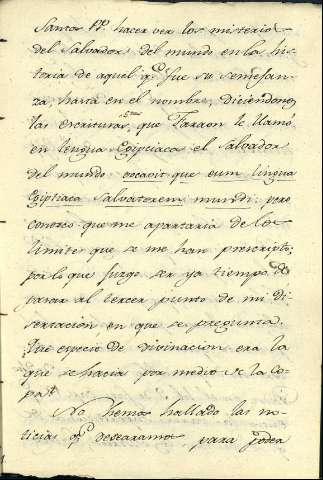 Santos PP. hacer ver los misterios
del Salvador del mundo en la his-
toria de aquel qᵉ fue su semejan-
za, hasta en el nombre, diciendonos
las escrituras, que Faraon le llamó
en lengua Egipciaca el Salvador
del mundo vocavit que eum lingua
Egiptiaca Salvatorem mundi: pero
conosco que me apartaria de los
limites que se me han prescripto;
por lo que juzgo ser ya tiempo de
pasar al tercer punto de mi di-
sertacion en que se pregunta.
Que especie de divinacion era la
que se hacia por medio de la co-
pa?
No hemos hallado las no-
ticias qᵉ desearamos para poder